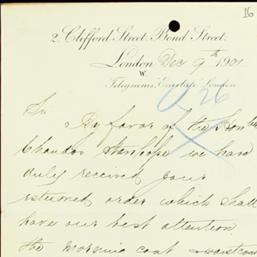 16
2, Clifford Street, Bond Street,
London Dec 9th 1901
W.
Telegrams, London.
026
Sir
By favor of the Honble
Chandos Stanhope we have
duly received your
esteemed order which shall
have our best attention
the morning coat waistcoat